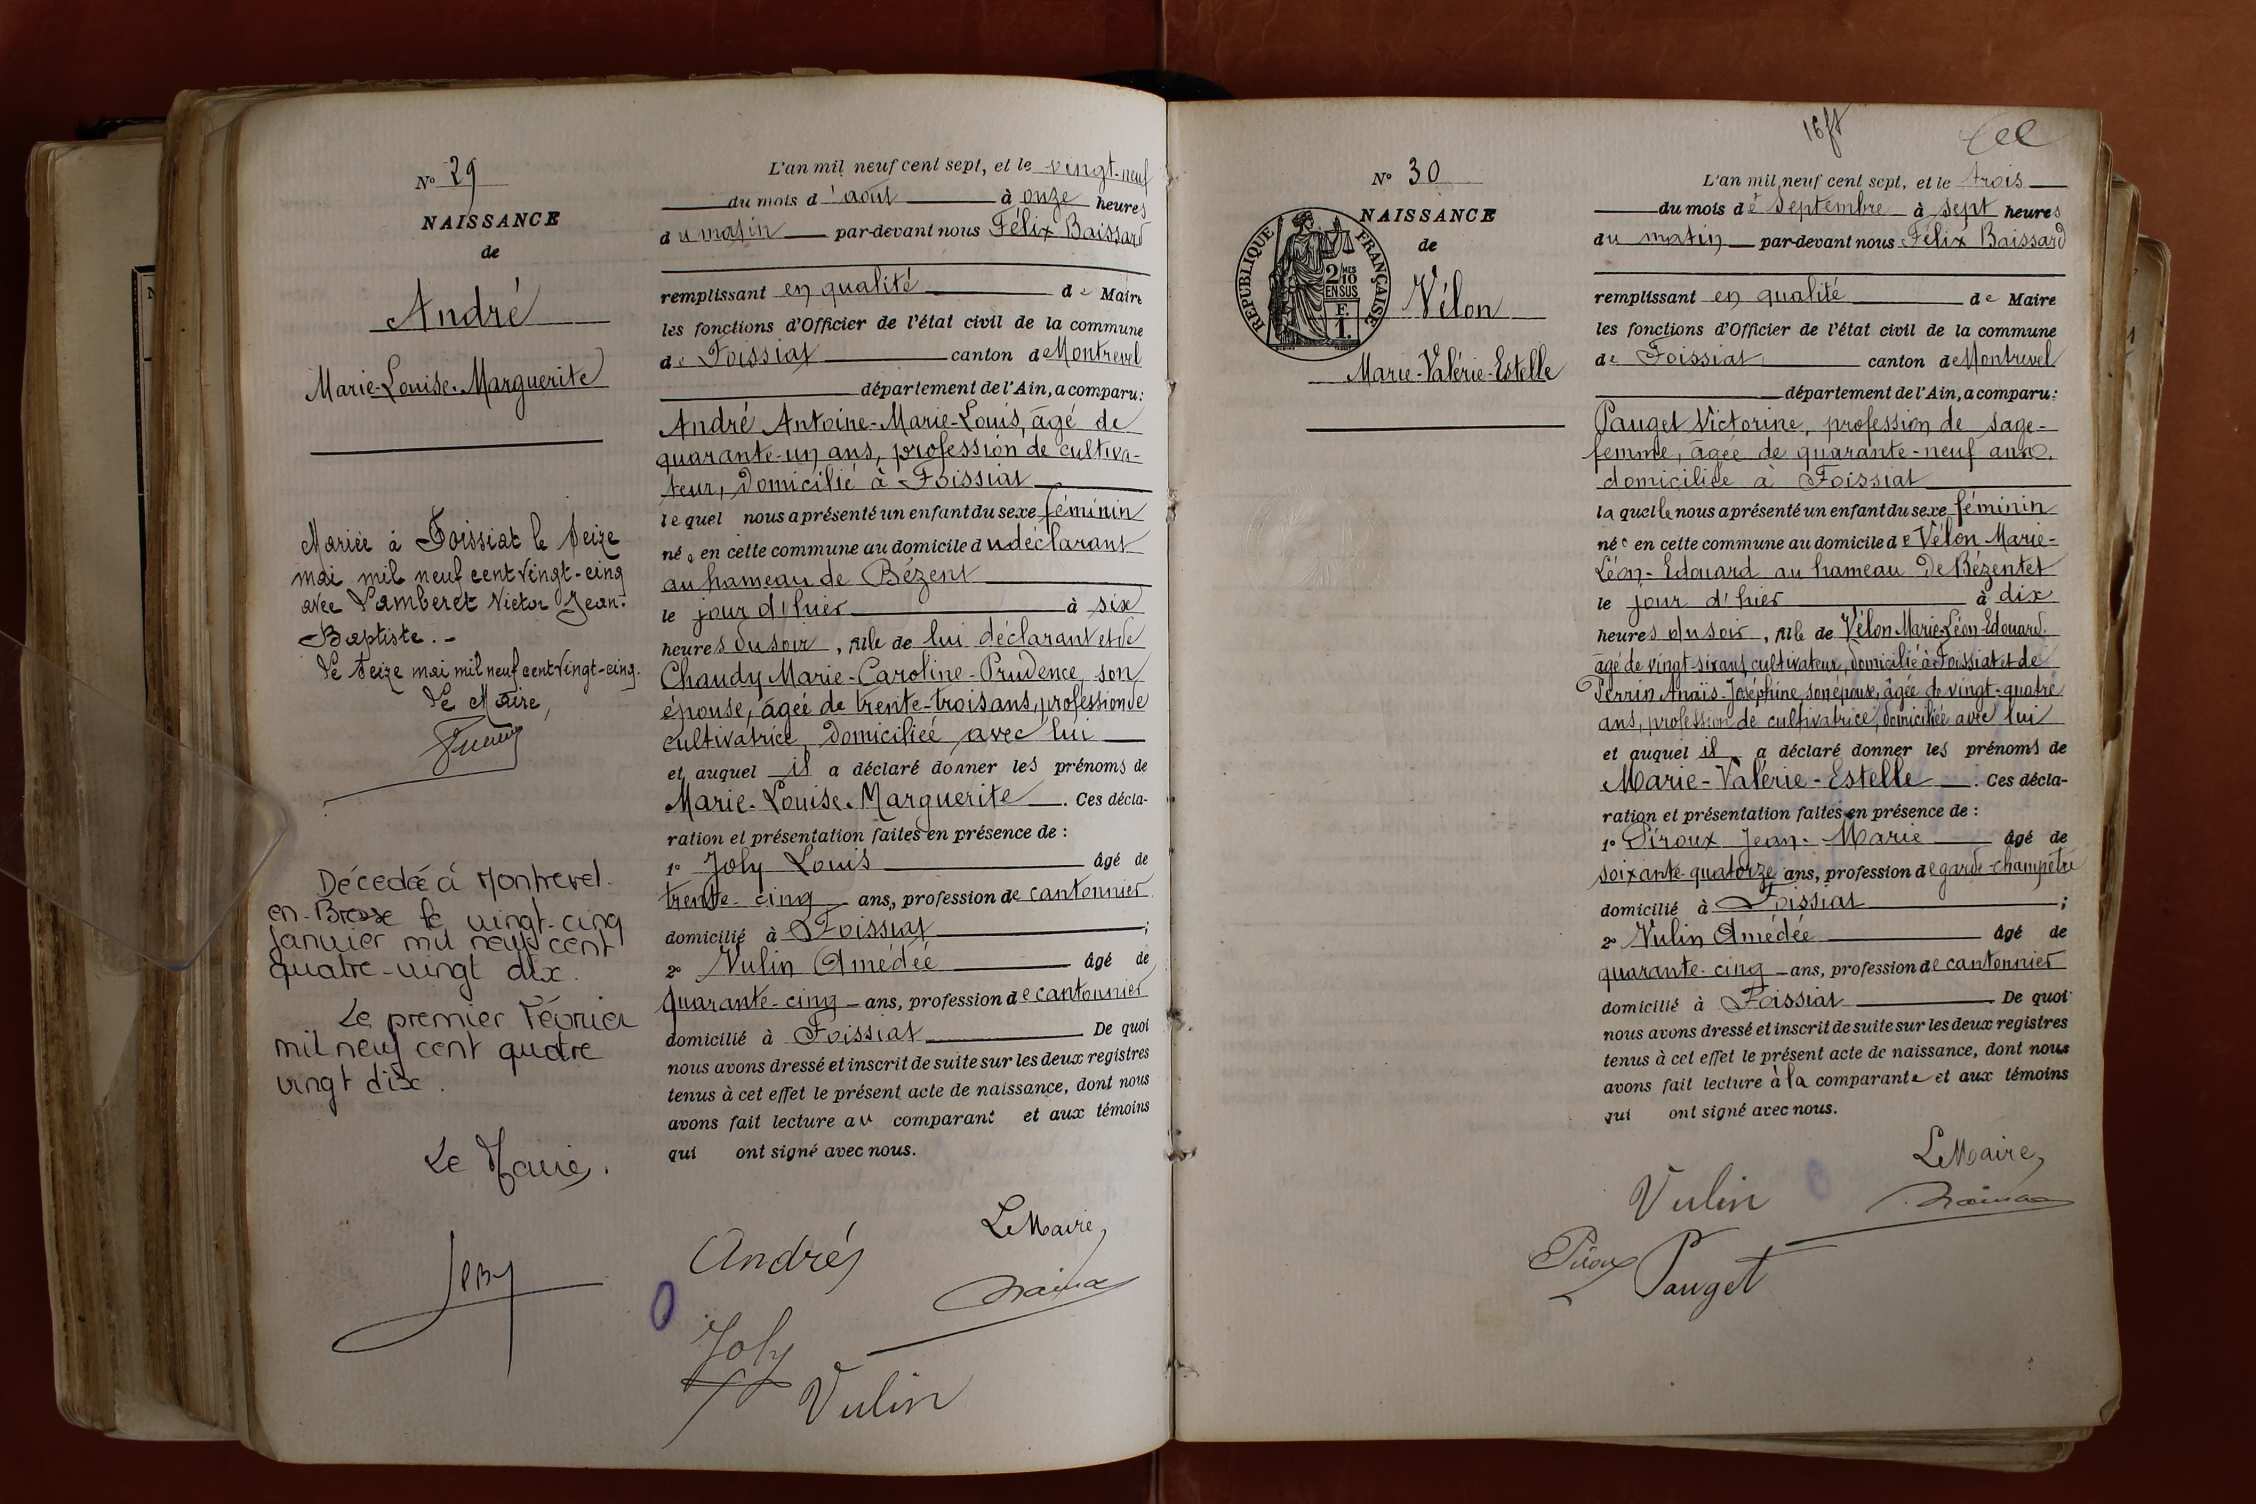 N° 29
NAISSANCE
de
André
Marie-Louise-Marguerite
Mariée à Foissiat le seize
mai mil neuf cent vingt-cinq
avec Lamberet Victor Jean-
Baptiste. -
Le seize mai mil neuf cent vingt-cinq.
Le Maire,
Décedée à Montrevel.
en-Bresse le vingt-cinq
janvier mil neuf cent
quatre-vingt dix.
Le premier Février
mil neuf cent quatre
vingt dix.
Le Maire,
L'an mil neuf cent sept, et le vingt-neuf
du mois d'août à onze heures
du matin par-devant nous Félix Baissard
remplissant en qualité de Maire
les fonctions d'Officier de l'état civil de la commune
de Foissiat canton de Montrevel
département de l'Ain, a comparu:
André Antoine-Marie-Louis, âgé de
quarante-un ans, profession de cultiva-
teur, domicilié à Foissiat
lequel nous a présenté un enfant du sexe féminin
née en cette commune au domicile du déclarant
au hameau de Bézent
le jour d'hier à six
heures du soir, fille de lui déclarant et de
Chaudy Marie-Caroline-Prudence, son
épouse, âgée de trente-trois ans, profession de
cultivatrice, domiciliée avec lui
et auquel il a déclaré donner les prénoms de
Marie-Louise-Marguerite. Ces décla-
ration et présentation faites en présence de :
1° Joly Louis âgé de
trente-cinq ans, profession de cantonnier
domicilié à Foissiat ;
2° Vulin Amédée âgé de
quarante-cinq ans, profession de cantonnier
domicilié à Foissiat De quoi
nous avons dressé et inscrit de suite sur les deux registres
tenus à cet effet le présent acte de naissance, dont nous
avons fait lecture au comparant et aux témoins
qui ont signé avec nous.
Le Maire,
André
Joly
Vulin
16 ft
N° 30
NAISSANCE
de
RÉPUBLIQUE FRANÇAISE
2/10 MES
EN SUS
F.
1.
Vélon
Marie-Valérie-Estelle
L'an mil neuf cent sept, et le trois
du mois de Septembre à sept heures
du matin par-devant nous Félix Baissard
remplissant en qualité de Maire
les fonctions d'Officier de l'état civil de la commune
de Foissiat canton de Montrevel
département de l'Ain, a comparu:
Pauget Victorine, profession de sage-
femme, âgée de quarante-neuf ans,
domiciliée à Foissiat
laquelle nous a présenté un enfant du sexe féminin
née en cette commune au domicile de Vélon Marie-
Léon-Edouard au hameau de Bézentet
le jour d'hier à dix
heures du soir, fille de Vélon Marie-Léon-Edouard.
âgé de vingt-six ans, cultivateur, domicilié à Foissiat et de
Perrin Anaïs-Joséphine son épouse, âgée de vingt-quatre
ans, profession de cultivatrice, domiciliée avec lui
et auquel il a déclaré donner les prénoms de
Marie-Valérie-Estelle. Ces décla-
ration et présentation faites en présence de :
1° Piroux Jean-Marie âgé de
soixante-quatorze ans, profession de garde-champêtre
domicilié à Foissiat ;
2° Vulin Amédée âgé de
quarante-cinq ans, profession de cantonnier
domicilié à Foissiat De quoi
nous avons dressé et inscrit de suite sur les deux registres
tenus à cet effet le présent acte de naissance, dont nous
avons fait lecture à la comparante et aux témoins
qui ont signé avec nous.
Le Maire,
Vulin
Piroux
Pauget